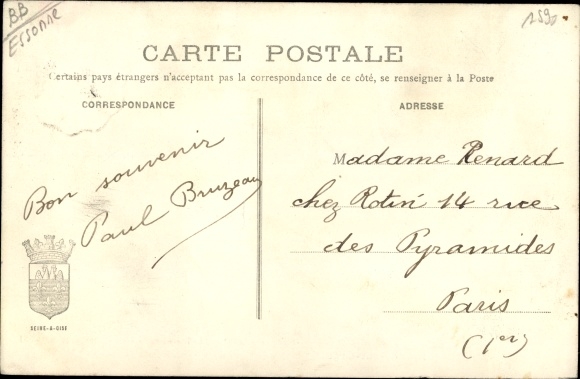 BB
Essonne
CARTE POSTALE
Certains pays étrangers n'acceptant pas la correspondance de ce côté, se renseigner à la Poste
CORRESPONDANCE
Bon souvenir
Paul Bruzeau
SEINE-&-OISE
ADRESSE
Madame Renard
chez Rotin 14 rue
des Pyramides
Paris
(1er)